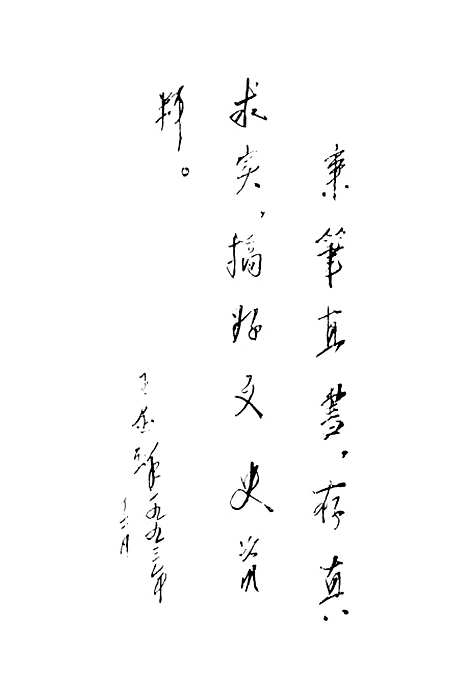 秉笔直書，存真
求实，搞好文史资
料。
王 一九九三年
十二月